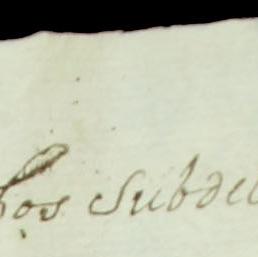 os Subdel